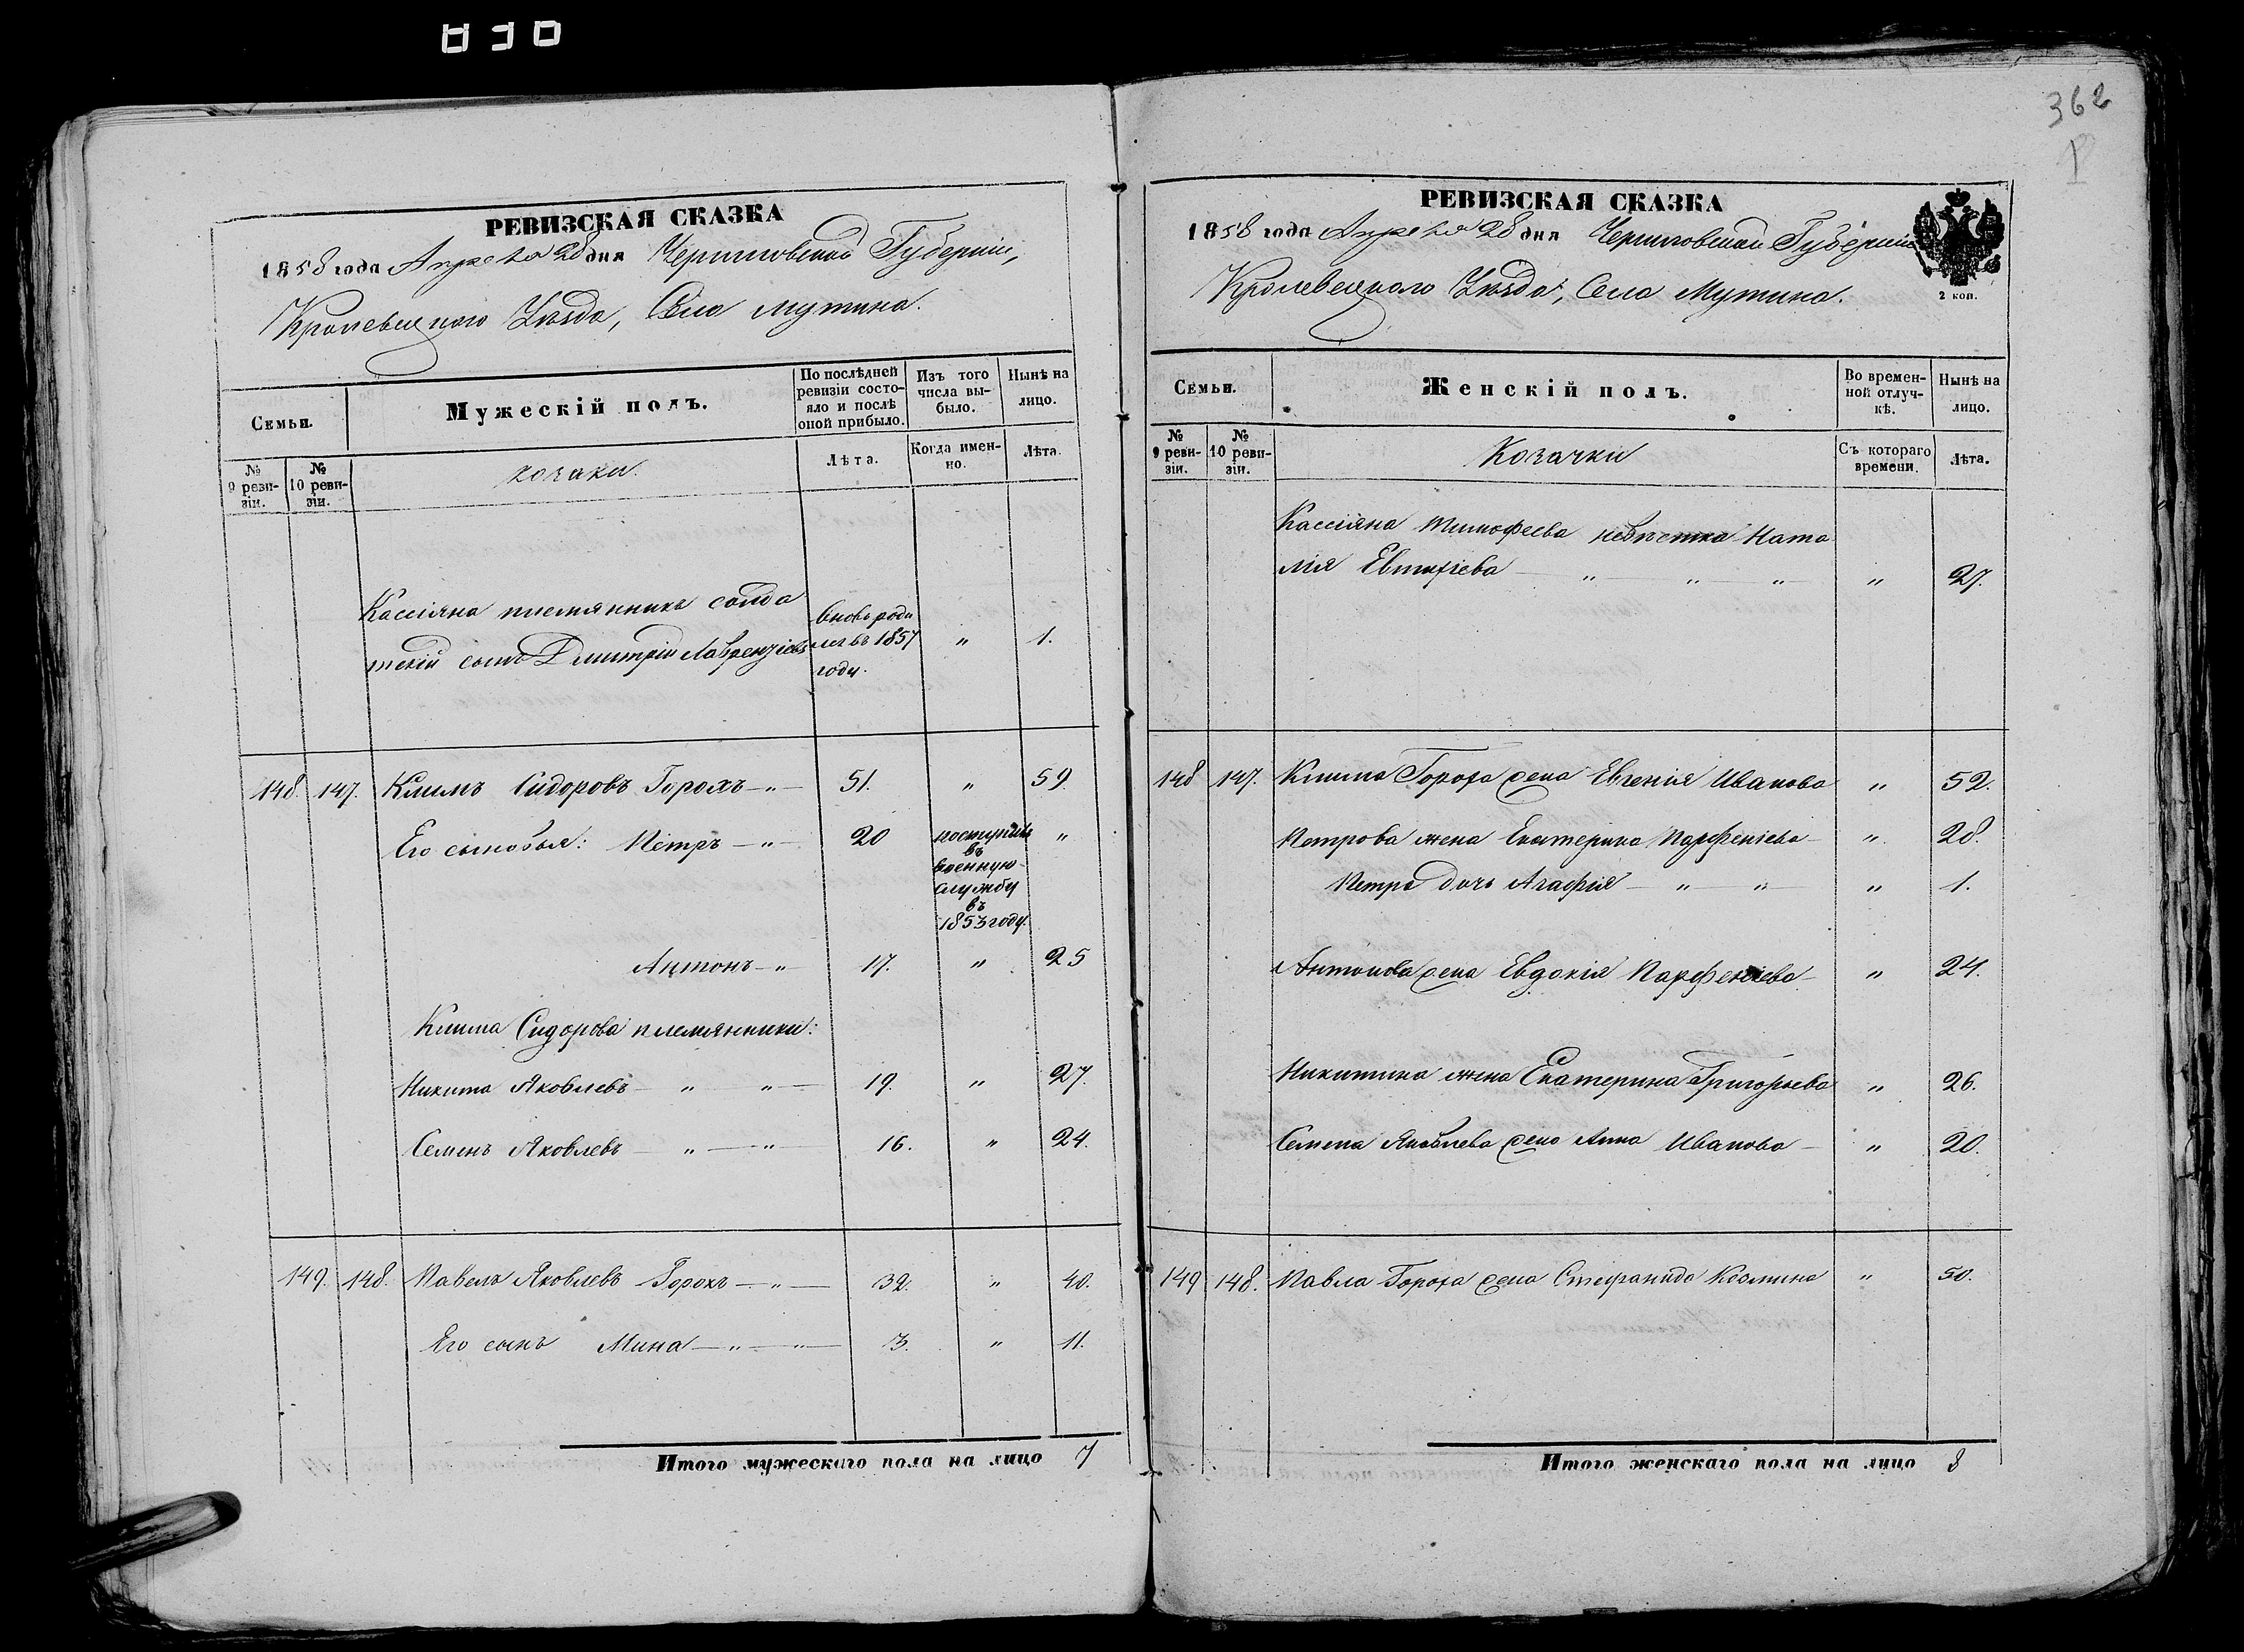 362
РЕВИЗСКАЯ СКАЗКА
1858 года Апреля 28 дня Черниговской Губерніи,
Кролевецкого Уѣзда, Села Мутина.
Семьи.
Мужескій полъ.
По послѣдней ревизіи состо-
яло и послѣ
оной прибыло.
Изъ того
числа вы-
было.
Нынѣ на
лицо.
№
9 реви-
зіи.
№
10 реви-
зіи.
козаки.
Лѣта.
Когда имен-
но.
Лѣта.
Кассіяна племянника солда
тскій сынъ Дмитрій Лаврентіевъ
вновь роди
лся въ 1857
году.
" 1.
148. 147. Климъ Сидоровъ Горохъ — " — 51. " 59.
Его сыновья: Петръ — " — 20 поступилъ "
въ
военную
службу
въ
1853 году.
Антонъ — " 17. " 25
Клима Сидорова племянники:
Никита Яковлевъ — " " — 19. " 27.
Семенъ Яковлевъ — " — " 16. " 24.
149. 148. Павелъ Яковлевъ Горохъ — " — 32. " 40.
Его сынъ Мина — " — " — 3. " 11.
Итого мужескаго пола на лицо 7
РЕВИЗСКАЯ СКАЗКА
1858 года Апреля 28 дня Черниговской Губерніи
Кролевецкого Уѣзда, Села Мутина.
2 коп.
Семьи.
Женскій полъ.
Во времен-
ной отлуч-
кѣ.
Нынѣ на
лицо.
№
9 реви-
зіи.
№
10 реви-
зіи.
Козачки
Съ котораго
времени.
Лѣта.
Кассіяна Тимофеева невѣстка Ната
лія Евтихіева — " — " — " — " 27.
148 147. Клима Гороха жена Евгенія Иванова " 52.
Петрова жена Екатерина Парфеніева — " 28.
Петра дочь Агафія — " " — " 1.
Антонова жена Евдокія Парфеніева — " 24.
Никитина жена Екатерина Григорьева " 26.
Семена Яковлева жена Анна Иванова — " 20.
149 148. Павла Гороха жена Стефанида Козмина " 50.
Итого женскаго пола на лицо 8